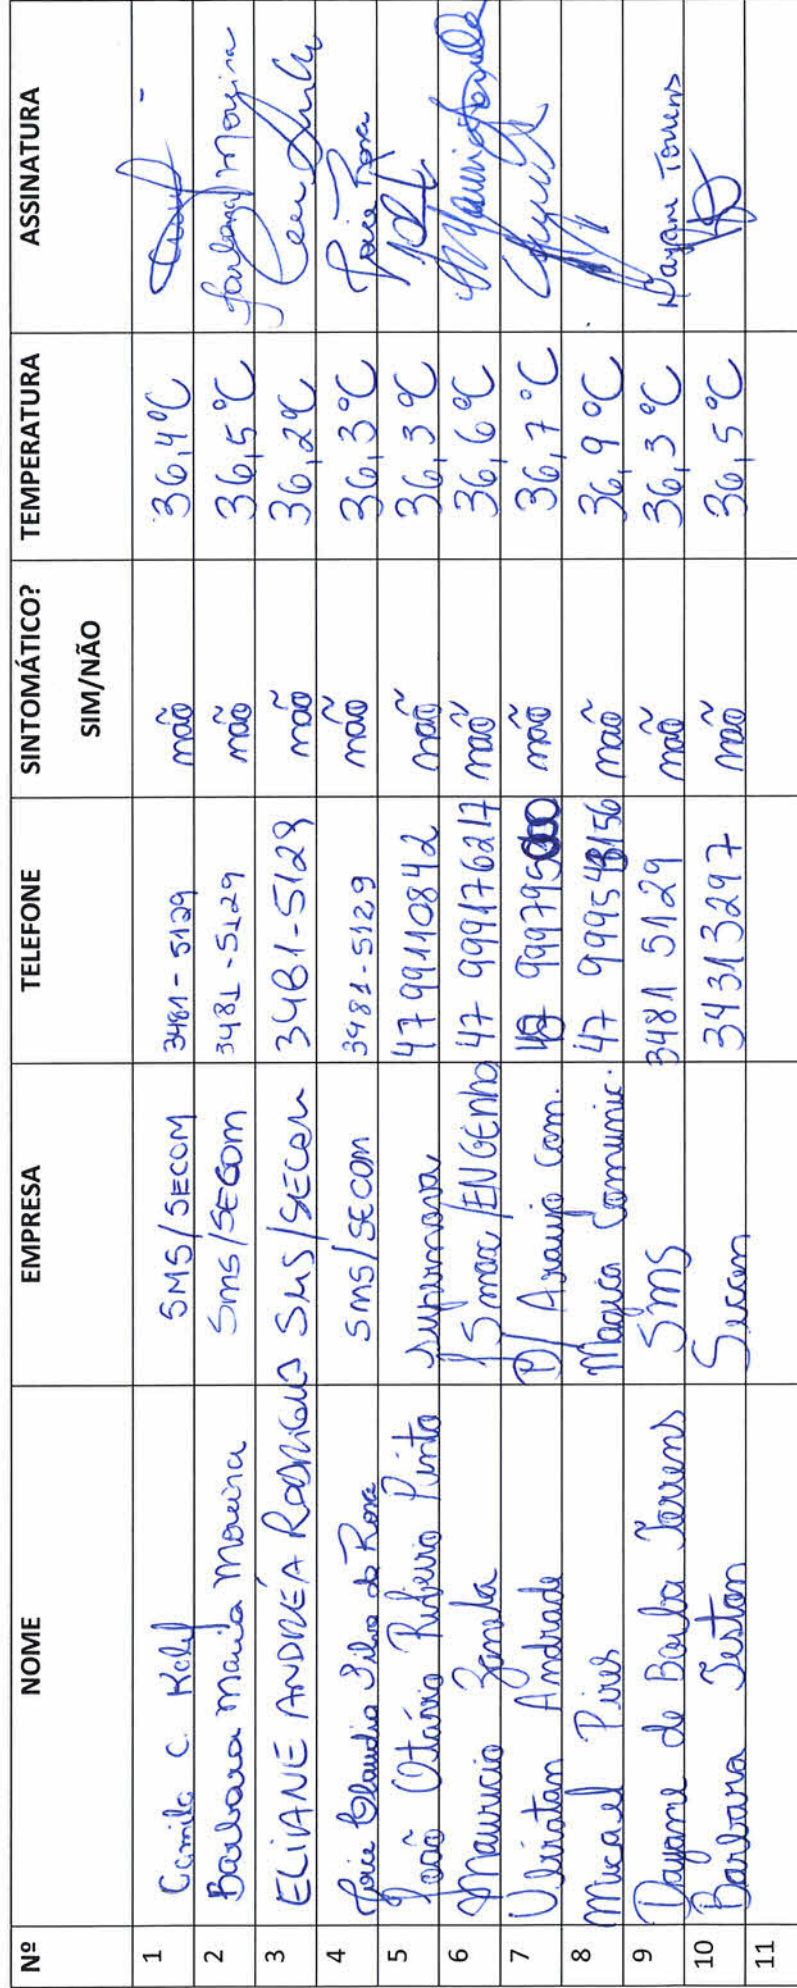 Nº NOME EMPRESA TELEFONE SINTOMÁTICO? SIM/NÃO TEMPERATURA ASSINATURA
1 Camila C. Kalef SMS/SECOM 3481-5129 não 36,4ºC
2 Barbara Maria Moreira SMS/SECOM 3481-5129 não 36,5ºC
3 ELIANE ANDRÉA RODRIGUES SMS/SECOM 3481-5129 não 36,2ºC
4 Joice Claudia Silva da Rosa SMS/SECOM 3481-5129 não 36,3ºC Joice Rosa
5 João Otávio Ribeiro Pinto Supernova 47 99110842 não 36,3ºC
6 Mauricio Zanela Smax/ENGENHO 47 999176217 não 36,6ºC
7 Ubiratan Andrade P/ Araujo Com. não 36,7ºC
8 Micael Pires Magica Comunic. não 36,9ºC
9 Dayane de Borba Torrens SMS 3481 5129 não 36,3ºC Dayane Torrens
10 Barbara Teston Secom 34313297 não 36,5ºC
11